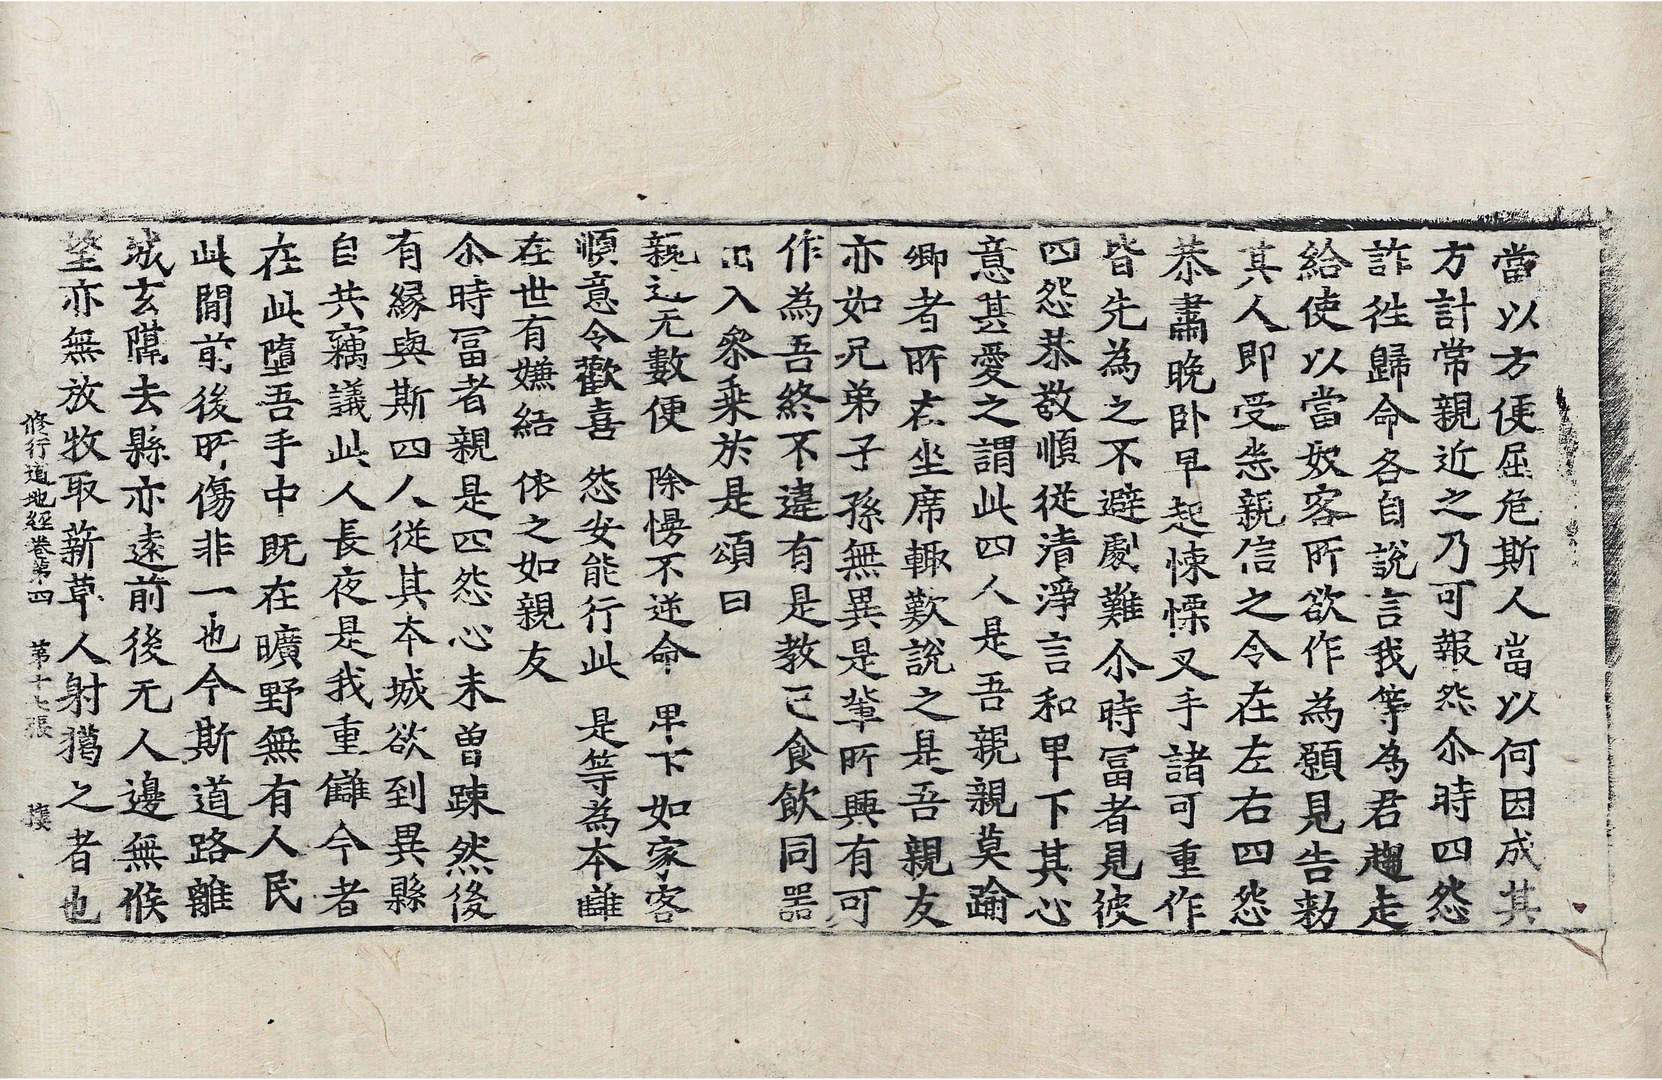 當以方便屈危斯人當以何因成其
方計常親近之乃可報怨尒時四怨
詐徃歸命各自說言我等為君趨走
給使以當奴客所欲作為願見告勑
其人即受悉親信之令在左右四怨
恭肅晩卧早起悚慄叉手諸可重作
皆先為之不避劇難尒時冨者見彼
四怨恭敬順從清淨言和卑下其心
意甚愛之謂此四人是吾親親莫踰
卿者所在坐席輙歎說之是吾親友
亦如兄弟子孫無異是輩所興有可
作為吾終不違有是教已食飲同器
出入參乗於是頌曰
親之无數便 除慢不逆命 卑下如家客
順意令歡喜 怨安能行此 是等為本讎
在世有嫌結 依之如親友
尒時冨者親是四怨心未曽踈然後
有緣與斯四人從其本城欲到異縣
自共竊議此人長夜是我重讎今者
在此墮吾手中既在曠野無有人民
此閒前後所傷非一也今斯道路離
城玄隔去縣亦逺前後无人邊無候
望亦無放牧取薪草人射獦之者也
修行道地經卷第四 第十七張